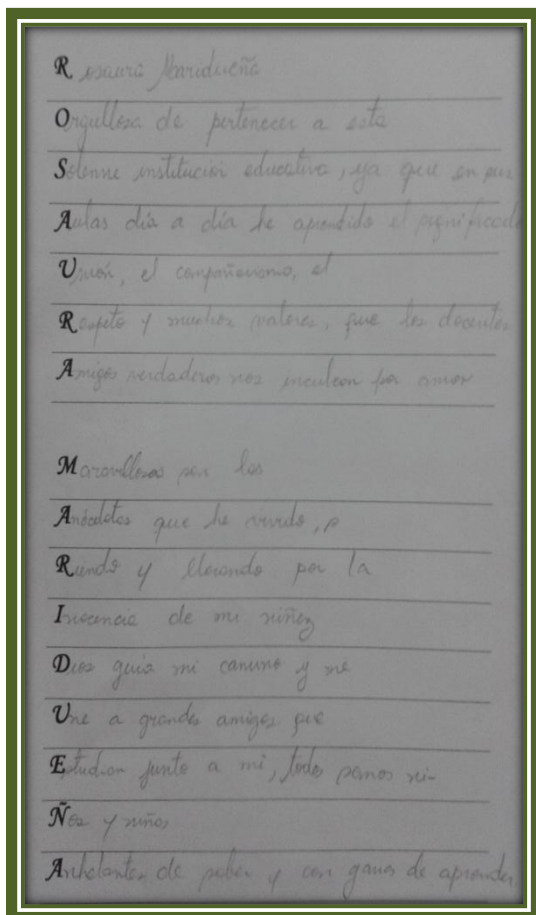 Rosaura Maridueña
Orgullosa de pertenecer a esta
Solenne institución educativa, ya que en sus
Aulas día a día he aprendido el significado
Unión, el compañerismo, el
Respeto y muchos valores, que los docentes
Amigos verdaderos nos inculcan por amor
Maravillosas son las
Anécdotas que he vivido,
Riendo y llorando por la
Inocencia de mi niñez
Dios guia mi camino y me
Une a grandes amigos que
Estudian junto a mi, todos somos ni-
Ños y niñas
Anhelantes de saber y con ganas de aprender